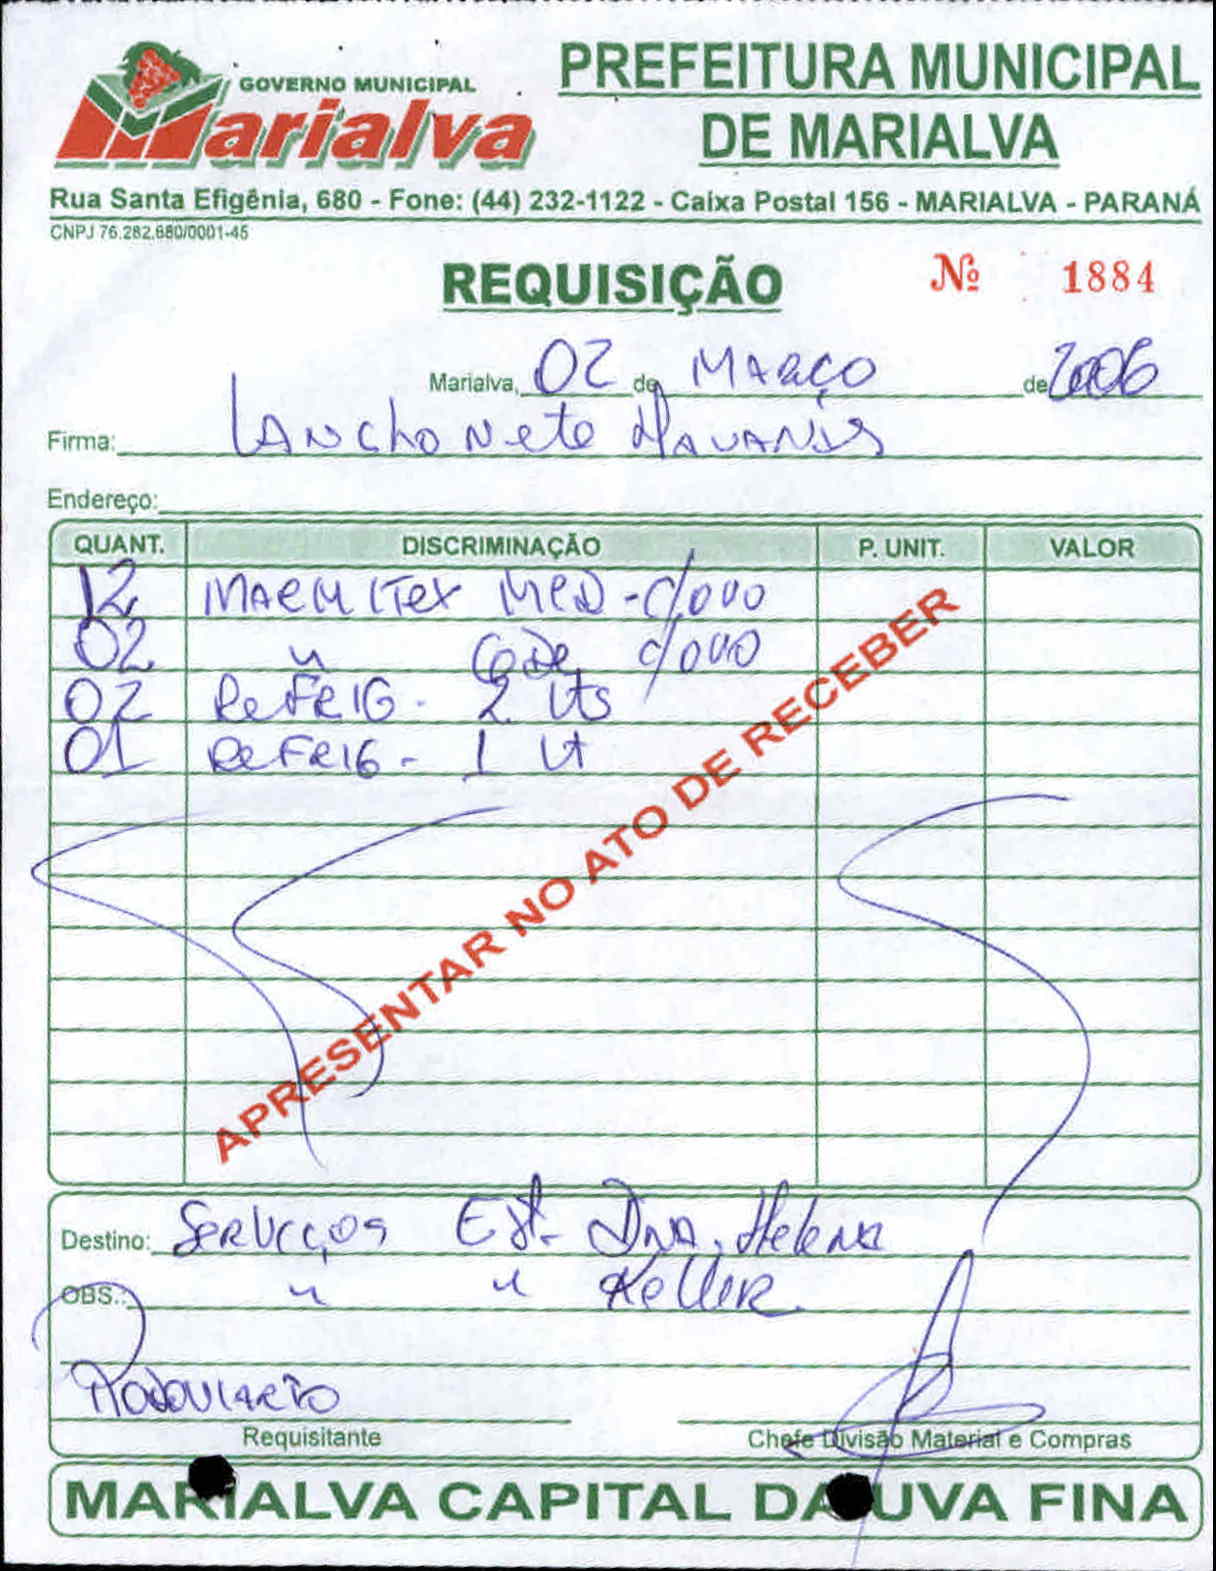 GOVERNO MUNICIPAL
Marialva
PREFEITURA MUNICIPAL
DE MARIALVA
Rua Santa Efigênia, 680 - Fone: (44) 232-1122 - Caixa Postal 156 - MARIALVA - PARANÁ
CNPJ 76.282.680/0001-45
REQUISIÇÃO Nº 1884
Marialva, 02 de MARÇO de 2006
Firma: LANCHONETE
Endereço:
QUANT. DISCRIMINAÇÃO P. UNIT. VALOR
12 MARMITEX MED - C/OVO
02 " C/OVO
02 REFRIG. 2 LTS
01 REFRIG - 1 LT
APRESENTAR NO ATO DE RECEBER
Destino: SERVIÇOS Est. DNA. Helena
OBS.: " " Keller
RODOVIARIO
Requisitante Chefe Divisão Material e Compras
MARIALVA CAPITAL DA UVA FINA